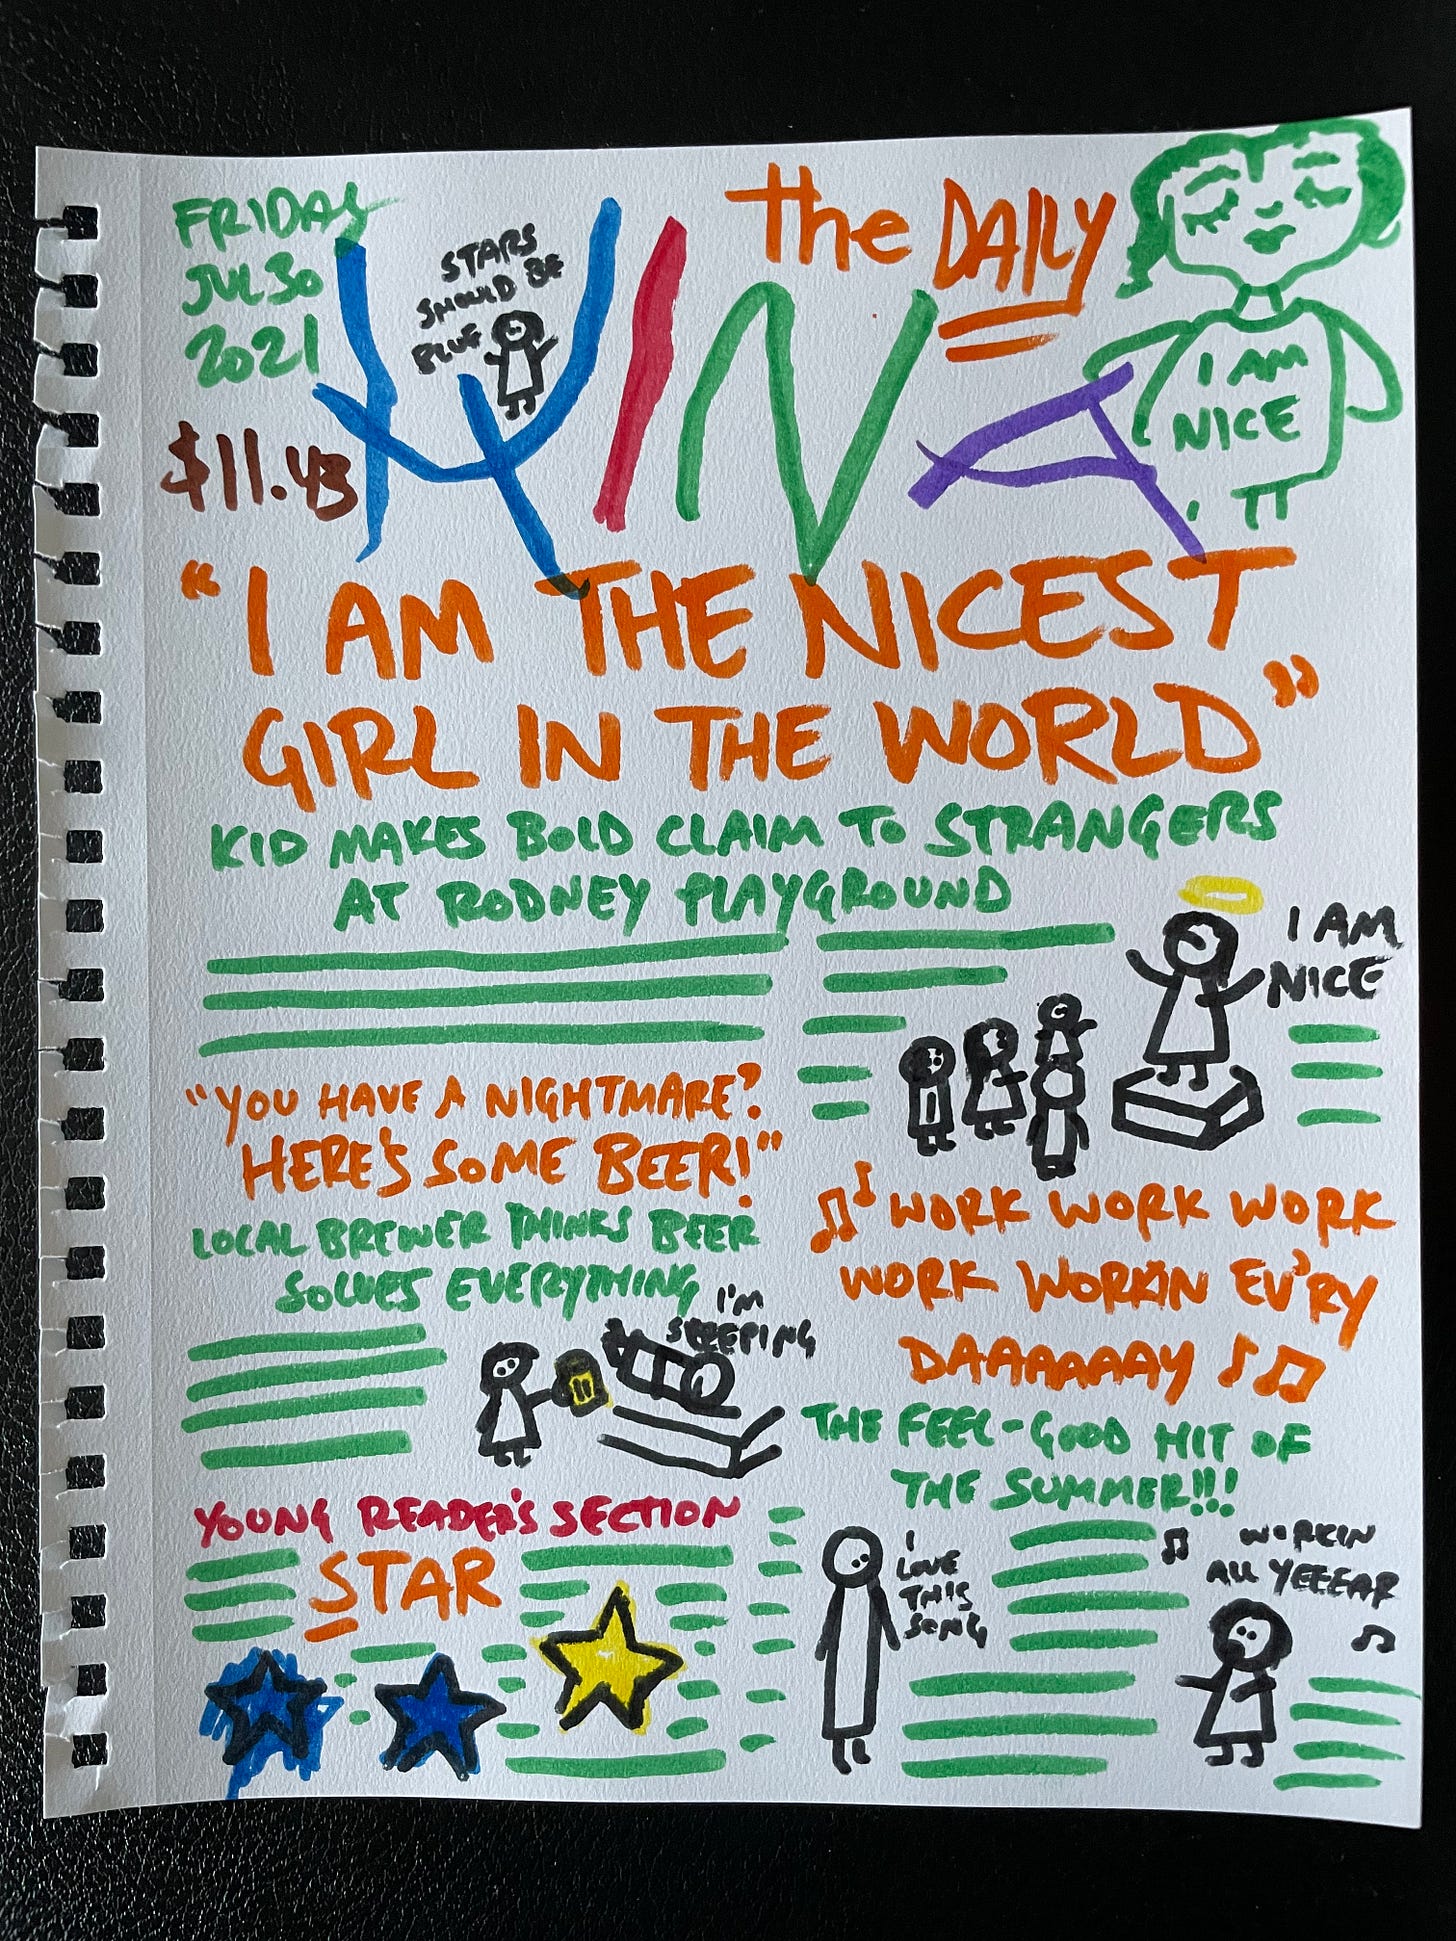 FRIDAY
JUL 30
2021
$11.43
STARS
SHOULD BE
BLUE
the DAILY
NINA
I AM
NICE
"I AM THE NICEST
GIRL IN THE WORLD"
KID MAKES BOLD CLAIM TO STRANGERS
AT RODNEY PLAYGROUND
I AM
NICE
"YOU HAVE A NIGHTMARE?
HERE'S SOME BEER!"
LOCAL BREWER THINKS BEER
SOLVES EVERYTHING
I'M
SLEEPING
♫♪ WORK WORK WORK
WORK WORKIN EV'RY
DAAAAAAY ♪♫
THE FEEL-GOOD HIT OF
THE SUMMER!!!
I
LOVE
THIS
SONG
♫ WORKIN
ALL YEEEAR
♫
YOUNG READER'S SECTION
STAR